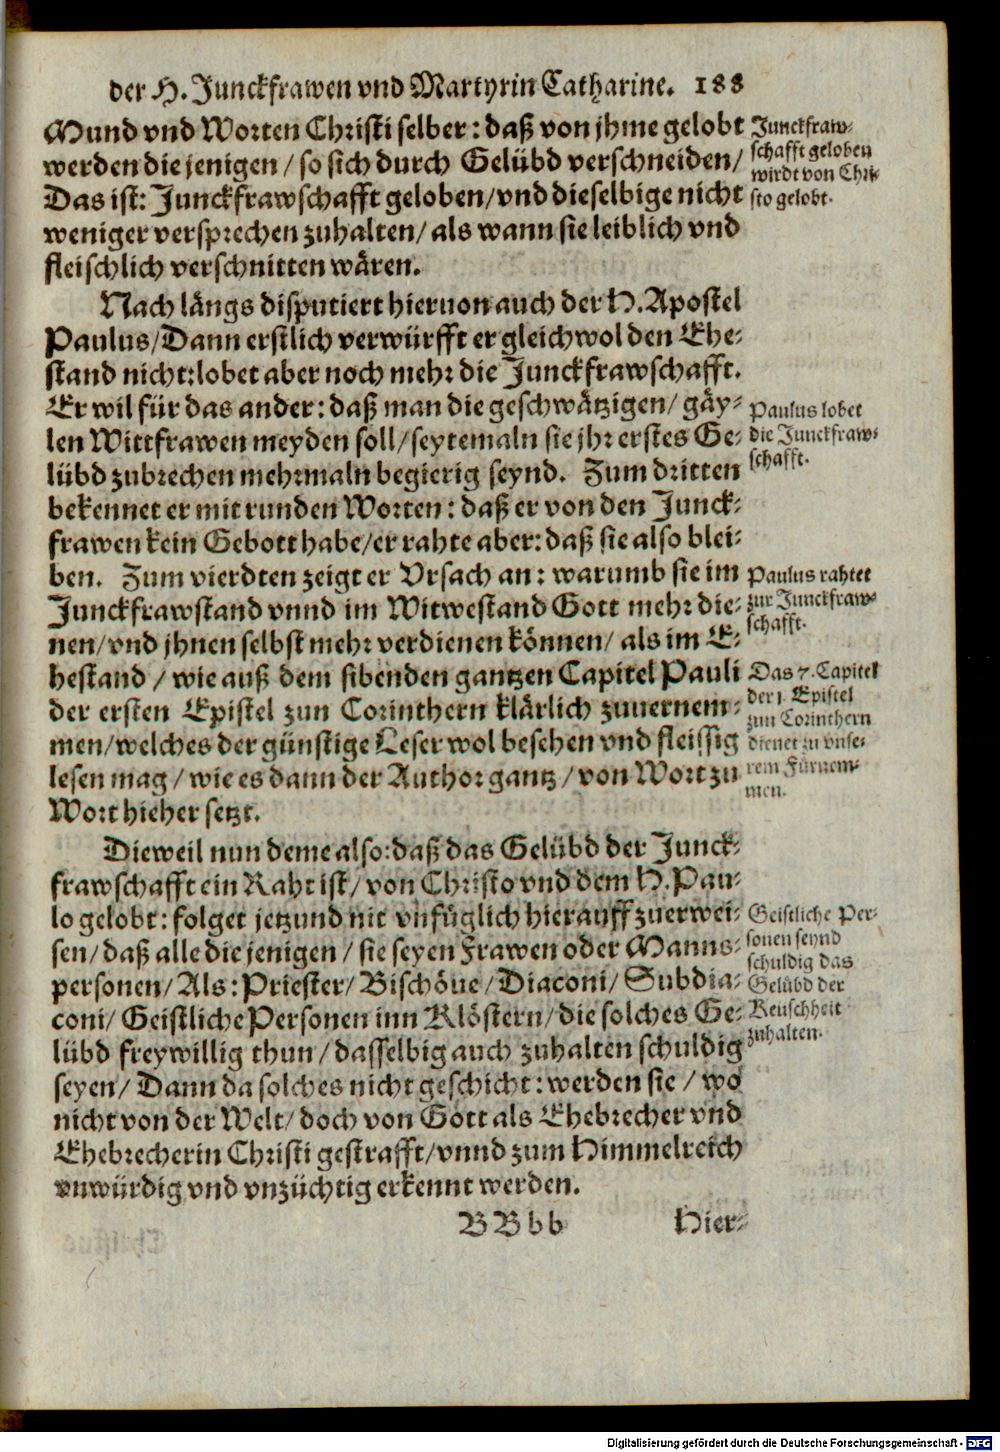 der H. Junckfrawen vnd Martyrin Catharine. 188
Mund vnd Worten Christi selber: daß von jhme gelobt
werden die jenigen / so sich durch Gelübd verschneiden /
Das ist: Junckfrawschafft geloben / vnd dieselbige nicht
weniger versprechen zuhalten / als wann sie leiblich vnd
fleischlich verschnitten wären.
Junckfraw-
schafft geloben
wirdt von Chri-
sto gelobt.
Nach längs disputiert hieruon auch der H. Apostel
Paulus / Dann erstlich verwürfft er gleichwol den Ehe-
stand nicht: lobet aber noch mehr die Junckfrawschafft.
Er wil für das ander: daß man die geschwätzigen / gäy-
len Wittfrawen meyden soll / seytemaln sie jhr erstes Ge-
lübd zubrechen mehrmaln begierig seynd. Zum dritten
bekennet er mit runden Worten: daß er von den Junck-
frawen kein Gebott habe / er rahte aber: daß sie also blei-
ben. Zum vierdten zeigt er Vrsach an: warumb sie im
Junckfrawstand vnnd im Witwestand Gott mehr die-
nen / vnd jhnen selbst mehr verdienen können / als im E-
hestand / wie auß dem sibenden gantzen Capitel Pauli
der ersten Epistel zun Corinthern klärlich zuuernem-
men / welches der günstige Leser wol besehen vnd fleissig
lesen mag / wie es dann der Author gantz / von Wort zu
Wort hieher setzt.
Paulus lobet
die Junckfraw-
schafft.
Paulus rahtet
zur Junckfraw-
schafft.
Das 7. Capitel
der 1. Epistel
zun Corinthern
dienet zu vnse-
rem Fürnem-
men.
Dieweil nun deme also: daß das Gelübd der Junck-
frawschafft ein Raht ist / von Christo vnd dem H. Pau-
lo gelobt: folget jetzund nit vnfüglich hierauff zuerwei-
sen / daß alle die jenigen / sie seyen Frawen oder Manns-
personen / Als: Priester / Bischöue / Diaconi / Subdia-
coni / Geistliche Personen inn Klöstern / die solches Ge-
lübd freywillig thun / dasselbig auch zuhalten schuldig
seyen / Dann da solches nicht geschicht: werden sie / wo
nicht von der Welt / doch von Gott als Ehebrecher vnd
Ehebrecherin Christi gestrafft / vnnd zum Himmelreich
vnwürdig vnd vnzüchtig erkennt werden.
Geistliche Per-
sonen seynd
schuldig das
Gelübd der
Keuschheit
zuhalten.
BBbb Hier-
Digitalisierung gefördert durch die Deutsche Forschungsgemeinschaft - DFG